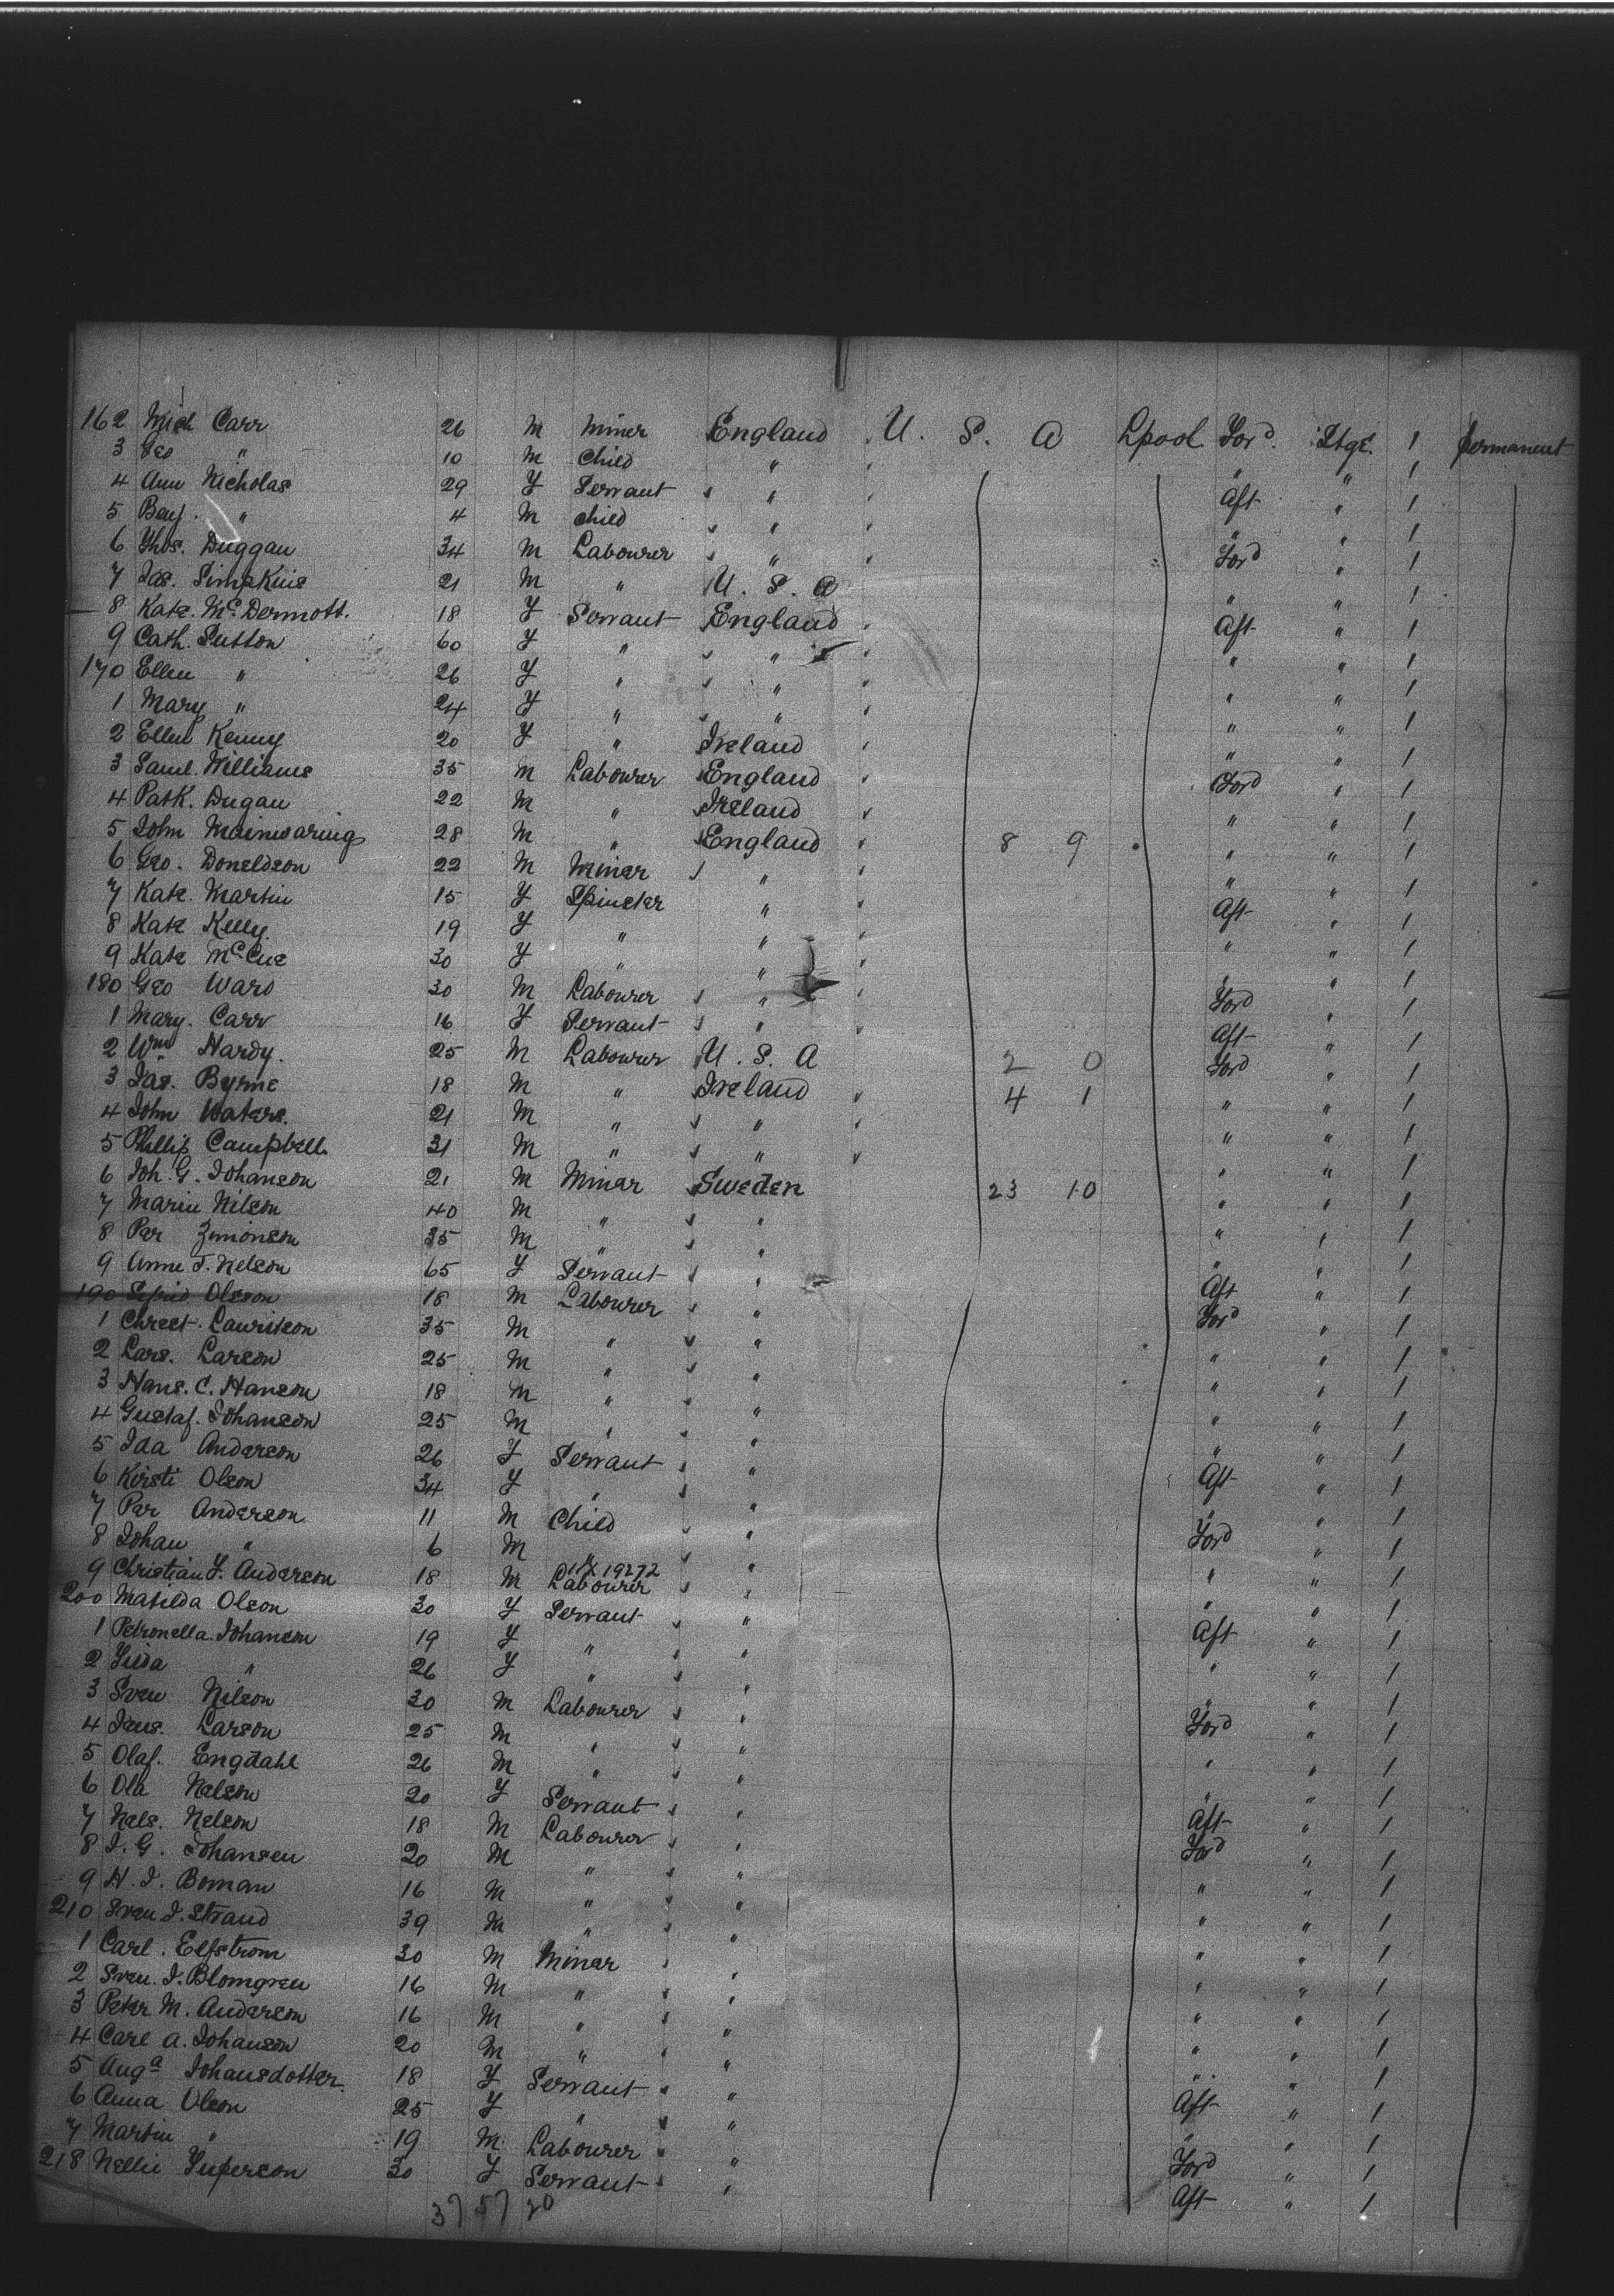 162 Mich Carr 26 M Miner England U. S. A Lpool Ford Stge. 1 permanent
3 Geo " 10 M Child " " " 1
4 Ann Nicholas 29 F Servant " Aft " 1
5 Benj. " 4 M child " " " 1
6 Thos. Duggan 34 M Labourer " Ford " 1
7 Jas. Simpkins 21 M " U. S. A " " 1
8 Kate. McDermott. 18 F Servant England Aft " 1
9 Cath. Sutton 60 F " " " " 1
170 Ellen " 26 F " " " " 1
1 Mary " 24 F " " " " 1
2 Ellen Kenny 20 F " Ireland " " 1
3 Saml. Williams 35 M Labourer England Ford " 1
4 Patk. Dugan 22 M " Ireland " " 1
5 John Mainwaring 28 M " England 8 9 " " 1
6 Geo. Doneldson 22 M Miner " " " 1
7 Kate. Martin 15 F Spinster " Aft " 1
8 Kate Kelly. 19 F " " " " 1
9 Kate McCue 30 F " " " " 1
180 Geo Ward 30 M Labourer " Ford " 1
1 Mary. Carr 16 F Servant " Aft " 1
2 Wm Hardy. 25 M Labourer U. S. A 2 0 Ford " 1
3 Jas. Byrne 18 M " Ireland 4 1 " " 1
4 John Waters. 21 M " " " " 1
5 Phillip Campbell. 31 M " " " " 1
6 Joh. G. Johanson 21 M Miner Sweden 23 10 " " 1
7 Marin Nilson 40 M " " " " 1
8 Par Zmonson 35 M " " " " 1
9 Anne J. Nelson 65 F Servant " Aft " 1
190 Olsson 18 M Labourer " Ford " 1
1 Christ. Lauritson 35 M " " " " 1
2 Lars. Larson 25 M " " " " 1
3 Hans. C. Hanson 18 M " " " " 1
4 Gustaf. Johanson 25 M " " " " 1
5 Ida Anderson 26 F Servant " Aft " 1
6 Kirsti Olson 34 F " " " " 1
7 Par Anderson 11 M Child " Ford " 1
8 Johan " 6 M " " " " 1
1X 19272
9 Christian F. Anderson 18 M Labourer " " " 1
200 Matilda Olson 30 F Servant " Aft " 1
1 Petronella. Johanson 19 F " " " " 1
2 " 26 F " " " " 1
3 Sven Nilson 30 M Labourer " Ford " 1
4 Jens. Larson 25 M " " " " 1
5 Olaf. Engdahl 26 M " " " " 1
6 Ola Nelson 20 F Servant " Aft " 1
7 Nels. Nelson 18 M Labourer " Ford " 1
8 J. G. Johansen 20 M " " " " 1
9 H. J. Boman 16 M " " " " 1
210 Sven J. Strand 39 M " " " " 1
1 Carl. Elfstrom 30 M Miner " " " 1
2 Sven. J. Blomgren 16 M " " " " 1
3 Peter M. Anderson 16 M " " " " 1
4 Carl A. Johanson 20 M " " " " 1
5 Auga Johansdotter. 18 F Servant " Aft " 1
6 Anna Olson 25 F " " " " 1
7 Martin " 19 M Labourer " Ford " 1
218 Nellie 30 F Servant " Aft " 1
37 57 20